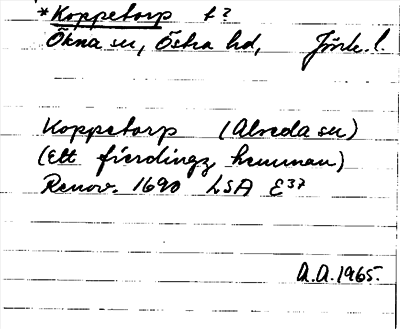 *Koppetorp f?
Ökna sn, Östra hd, Jönk. l.
Koppetorp (Alseda sn)
(Ett fierdingz hemman)
Renov. 1690 LSA E37
A.A. 1965.